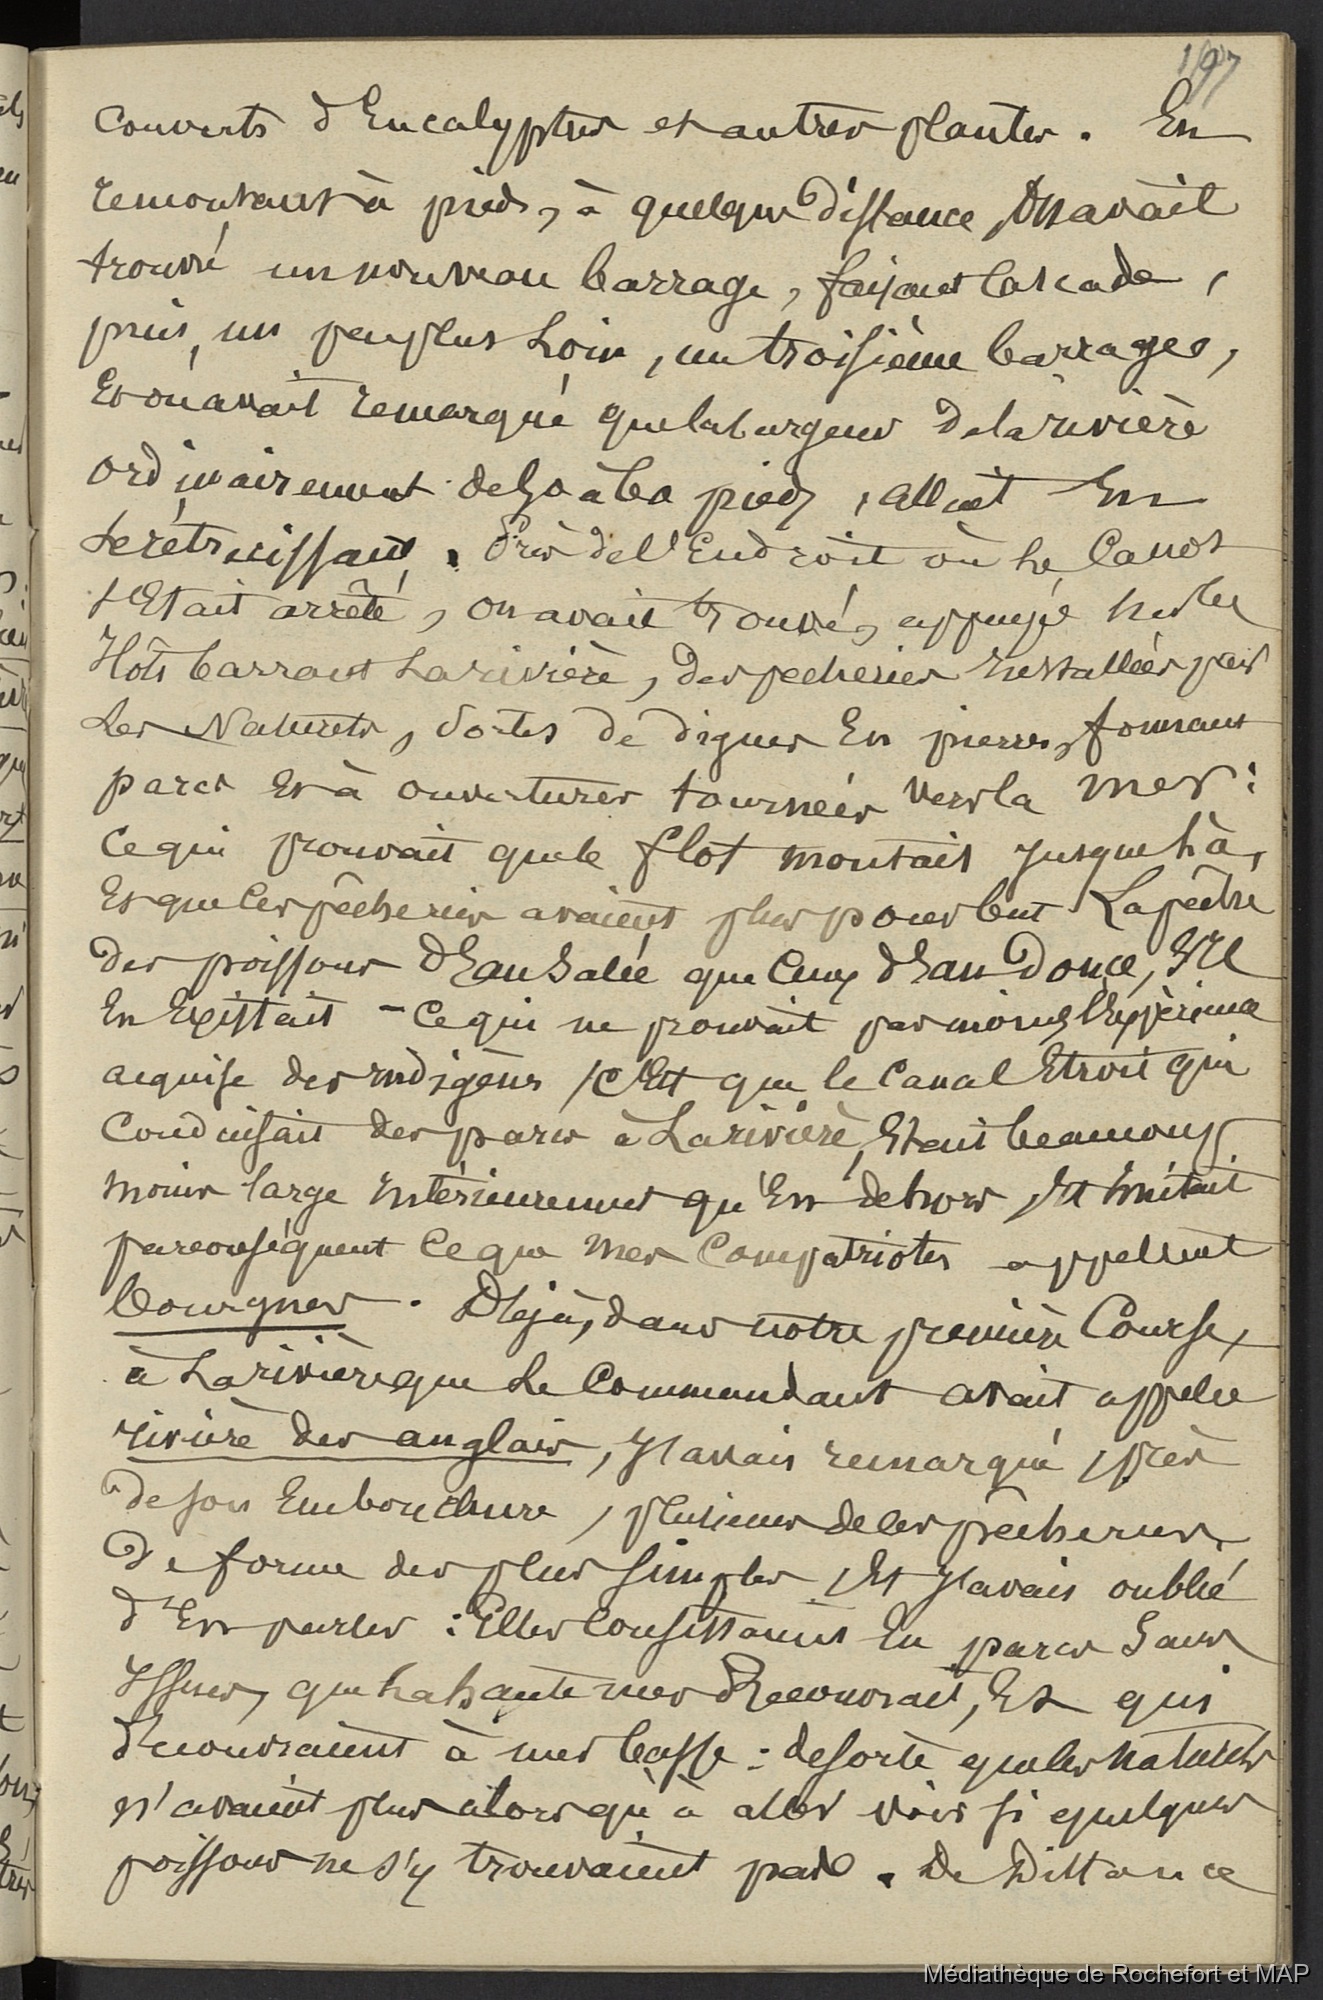 197
couverts d'Eucalyptus et autres plantes. En
remontant à pied, à quelque distance, on avait
trouvé un nouveau barrage, faisant Cascade,
puis, un peu plus Loin, un troisième barrages,
Et on avait remarqué que la largeur de la rivière
ordinairement de 50 à 60 pieds, allait En
se rétrécissant. Près de l'Endroit où Le Canot
s'Etait arrêté, on avait trouvé, appuyé sur les
Ilôts barrant La rivière, des pecheries Installées par
Les Naturels, sortes de digues En pierres, formant
parcs Et à ouvertures tournées vers la mer:
Ce qui prouvait que le flot montait jusque là,
Et que Ces pêcheries avaient plus pour but La pêche
des poissons d'Eau Salée que Ceux d'Eau Douce, s'Il
En Existait - Ce qui ne prouvait pas moins l'Expérience
acquise des indigènes, C'Est que le Canal Etroit qui
Conduisait des parcs à La rivière, Etait beaucoup
moins large Intérieurement qu'En dehors, Et Imitait
par conséquent Ce que mes Compatriotes appellent
bourgnes. Déjà, dans notre première Course,
à La rivière que Le Commandant avait appelée
rivière des anglais, j'avais remarqué, près
de son Embouchure, plusieurs de Ces pêcheries
de forme des plus simples, Et j'avais oublié
d'En parler: Elles Consistaient En parcs Sans
Issues, que La haute mer Recouvrait, Et qui
découvraient à mer basse: de sorte que les naturels
n'avaient plus alors qu'à aller voir si quelques
poissons ne s'y trouvaient pas. De Distance
Médiathèque de Rochefort et MAP